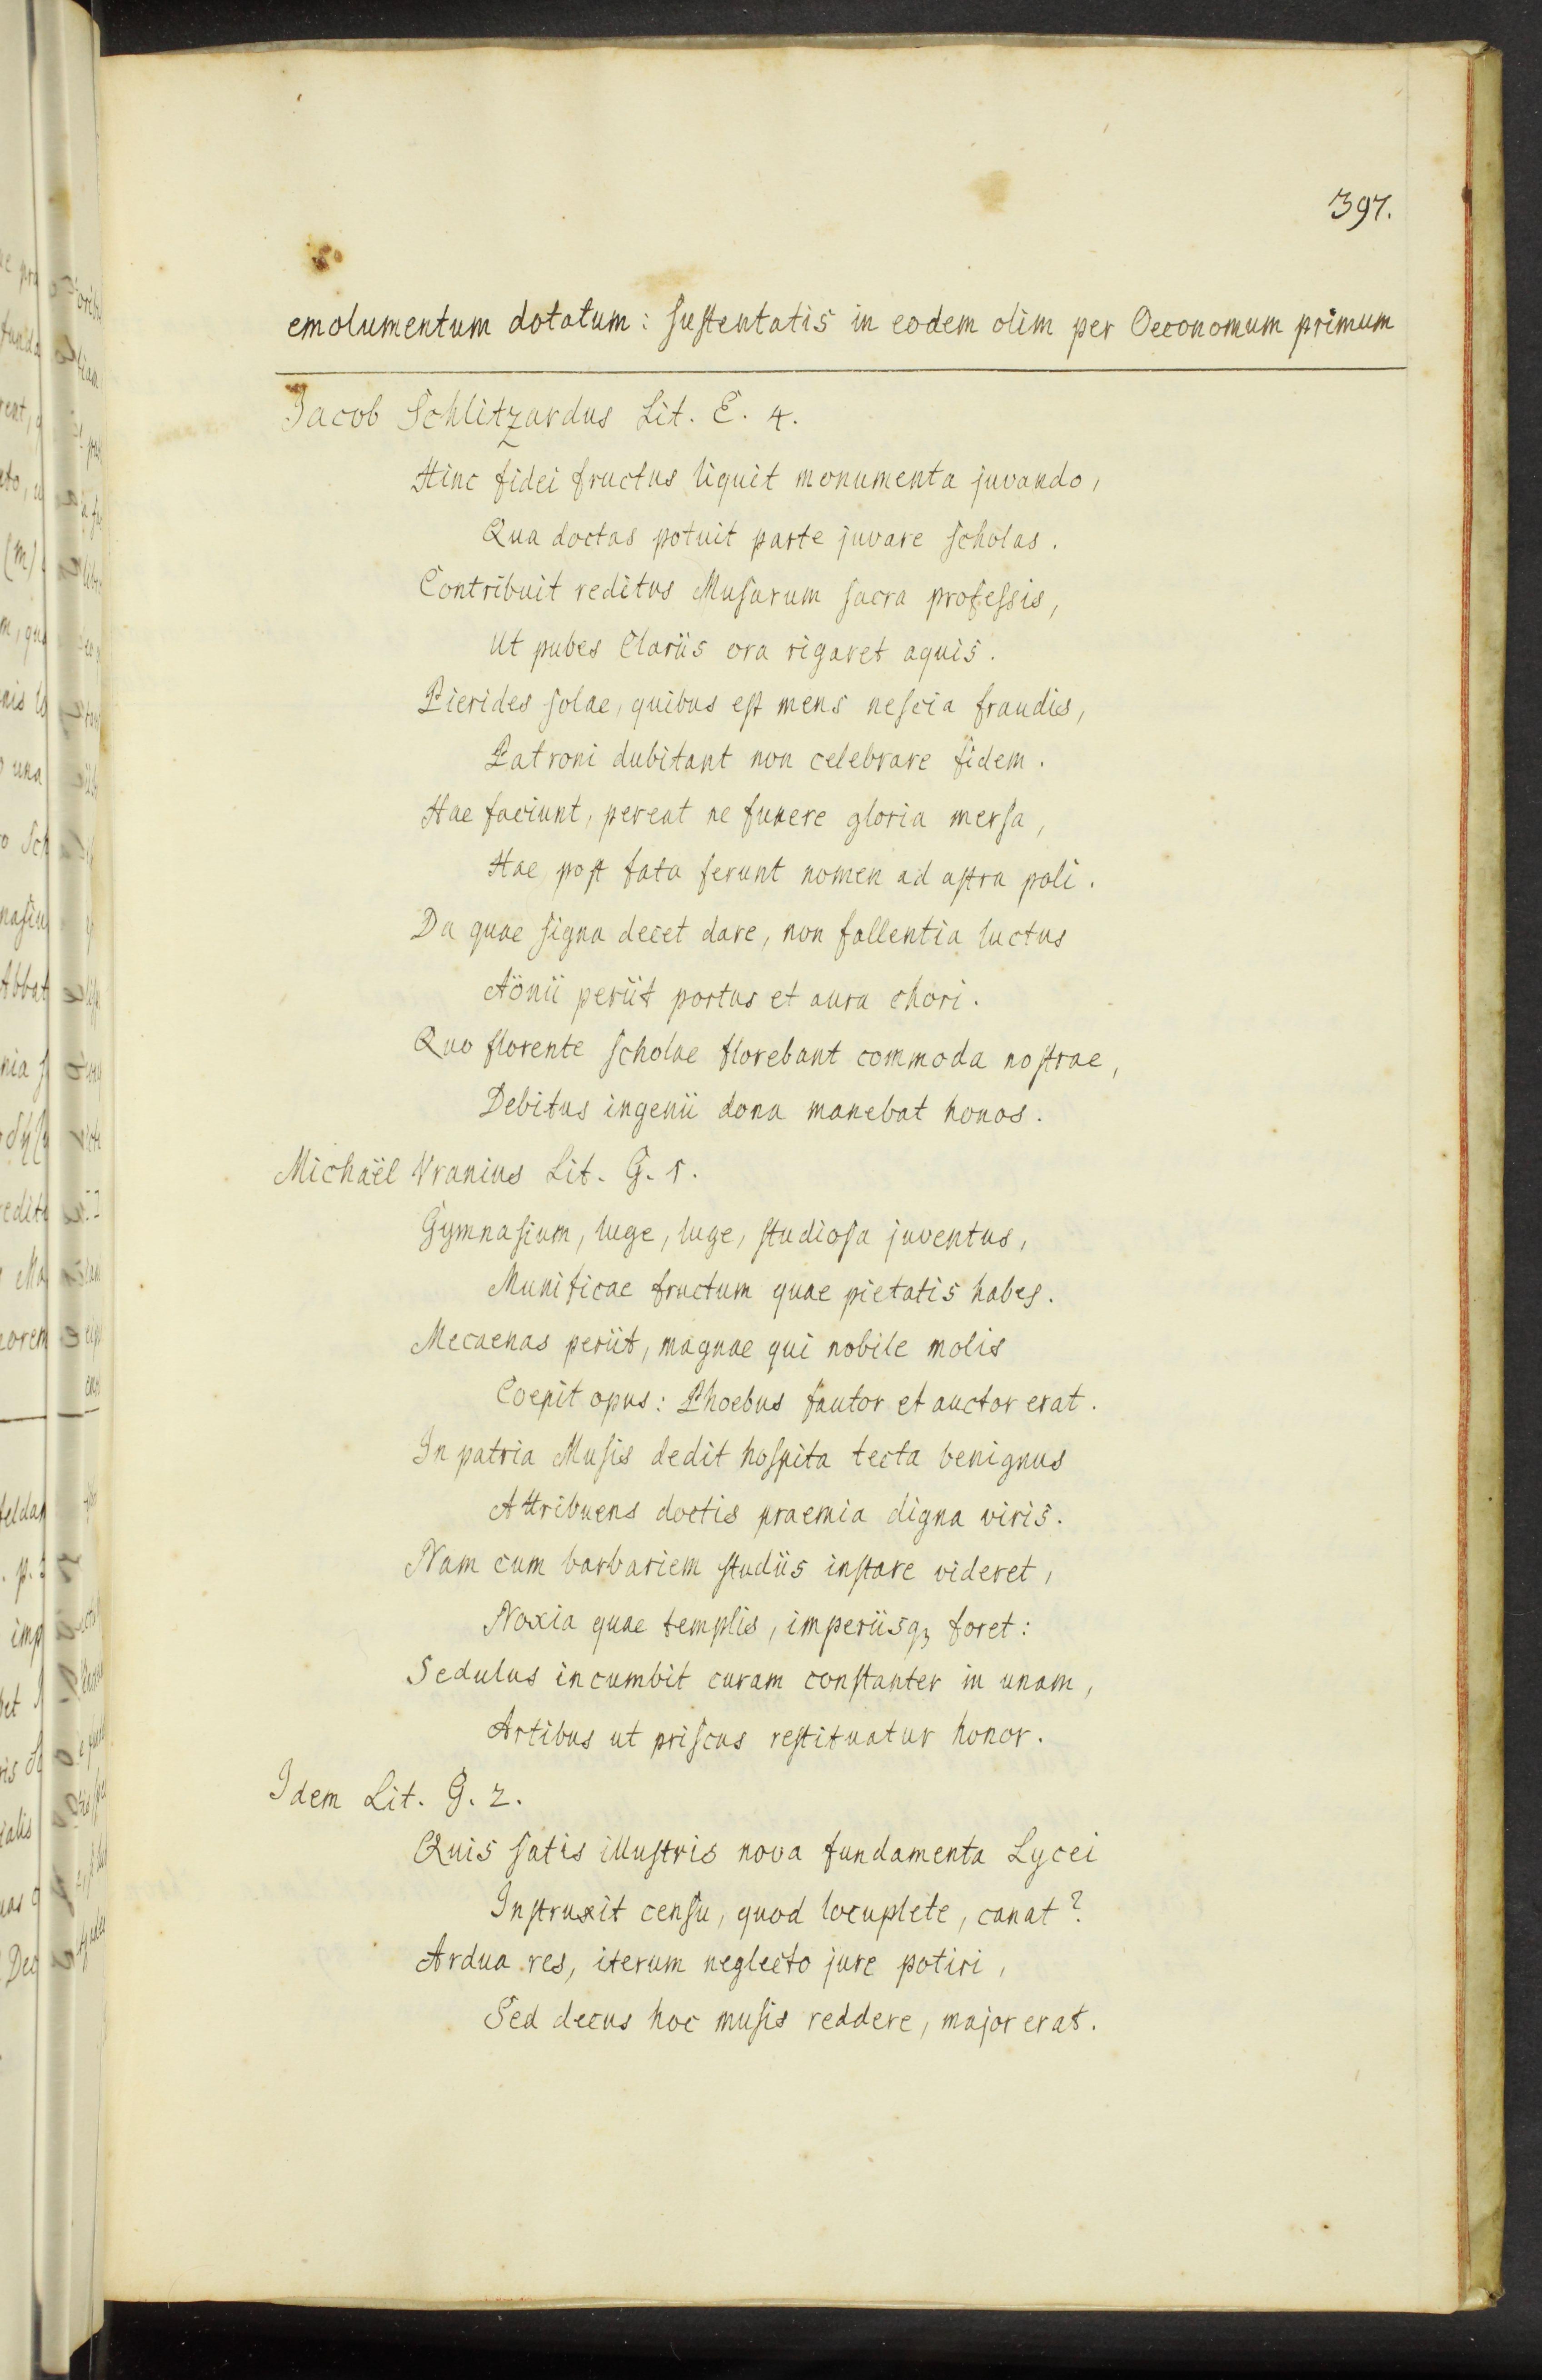 397.
emolumentum dotatum: sustentatis in eodem olim per Oeconomum primum
Jacob Schlitzardus Lit. E. 4.
Hinc fidei fructus liquit monumenta juvando,
Qua doctas potuit parte juvare scholas.
Contribuit reditus Musarum sacra professis,
Ut pubes Clariis ora rigaret aquis.
Pierides solae, quibus est mens nescia fraudis,
Patroni dubitant non celebrare fidem.
Hae faciunt, pereat ne funere gloria mersa,
Hae post fata ferunt nomen ad astra poli.
Da quae signa decet dare, non fallentia luctus
Aönii periit portus et aura chori.
Quo florente scholae florebant commoda nostrae,
Debitus ingenii dona manebat honos.
Michaël Vranius Lit. G. 1.
Gymnasium, luge, luge, studiosa juventus,
Munificae fructum quae pietatis habes.
Mecaenas periit, magnae qui nobile molis
Coepit opus: Phoebus fautor et auctor erat.
In patria Musis dedit hospita tecta benignus
Attribuens doctis praemia digna viris.
Nam cum barbariem studiis instare videret,
Noxia quae templis, imperiisqꝫ foret:
Sedulus incumbit curam constanter in unam,
Artibus ut priscus restituatur honor.
Idem Lit. G. 2.
Quis satis illustris nova fundamenta Lycei
Instruxit censu, quod locuplete, canat?
Ardua res, iterum neglecto jure potiri,
Sed decus hoc musis reddere, major erat.